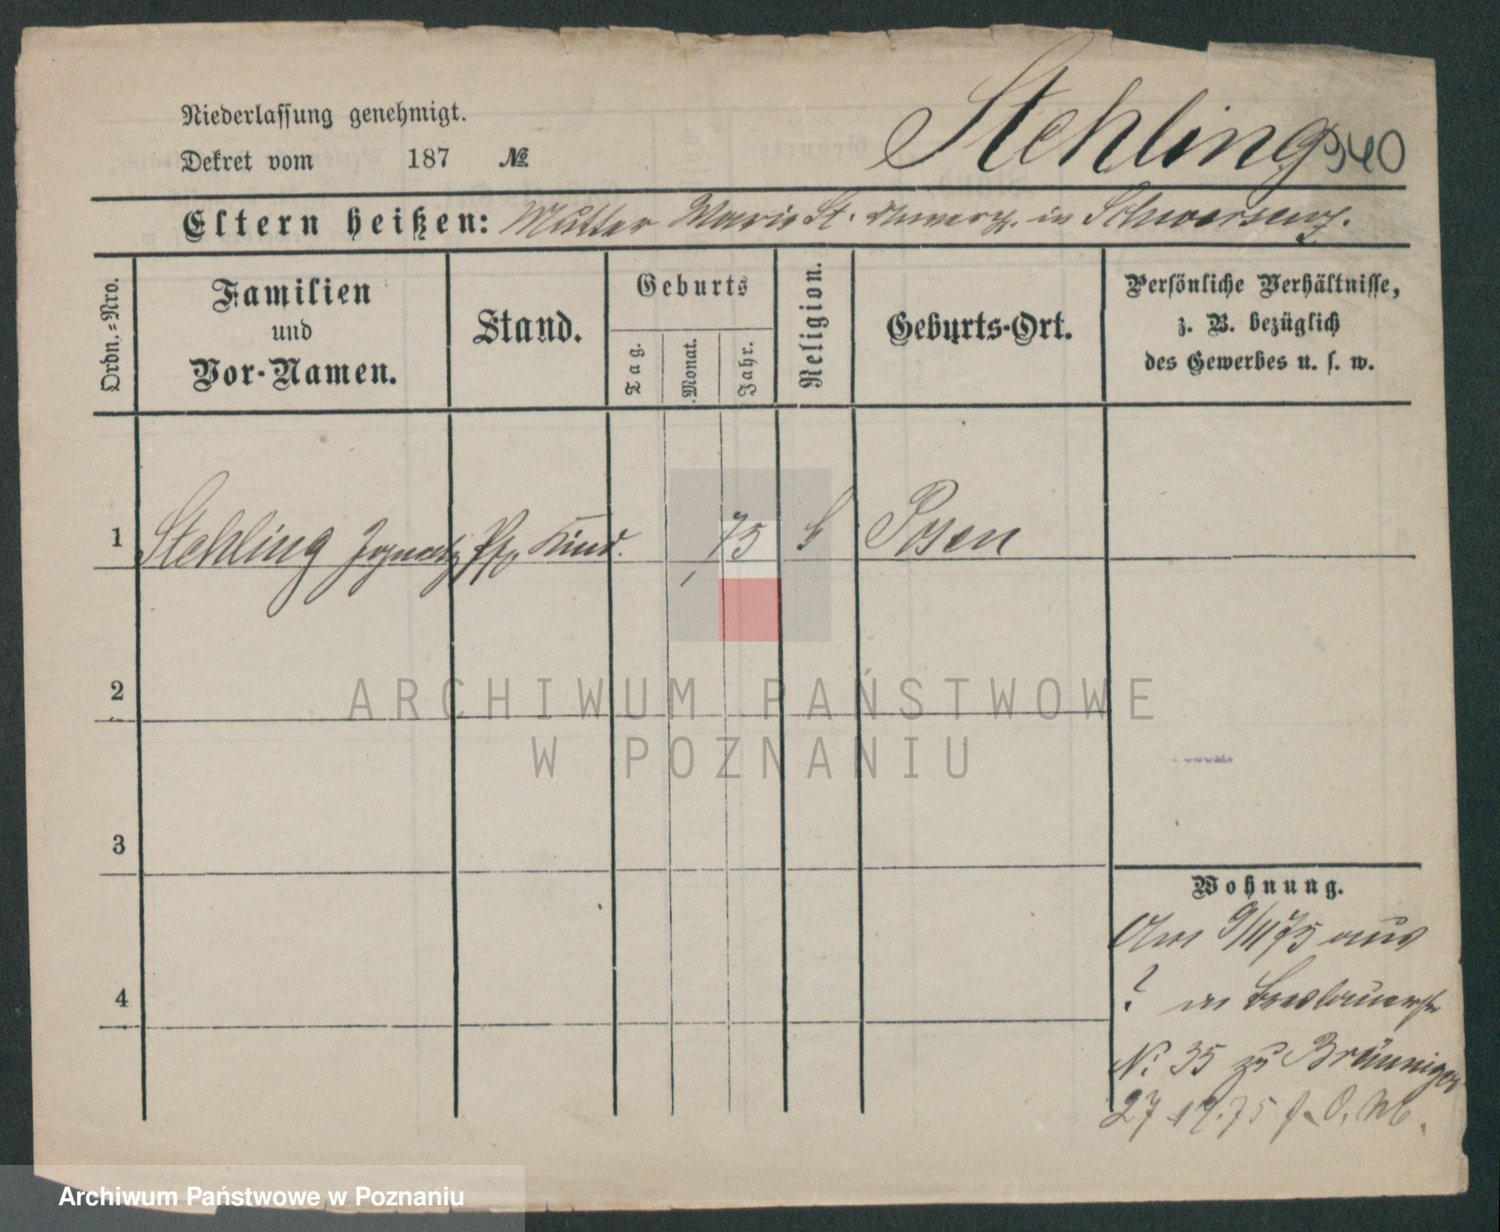 Niederlassung genehmigt.
Dekret vom 187 №
Stehling
340
Eltern heißen: Mutter Marie St. in Schwersenz.
Ordn.-Nro.
Familien
und
Vor-Namen.
Stand.
Geburts
Tag.
Monat.
Jahr.
Religion.
Geburts-Ort.
Persönliche Verhältnisse,
z. B. bezüglich
des Gewerbes u. s. w.
1 Stehling Ignatz Kind. 75 Posen
2
3
4
ARCHIWUM PAŃSTWOWE
W POZNANIU
Wohnung.
Am 9/11 75 aus
? in Breslauerstr
N: 35 zu Bräuniger
27 12. 75
Archiwum Państwowe w Poznaniu